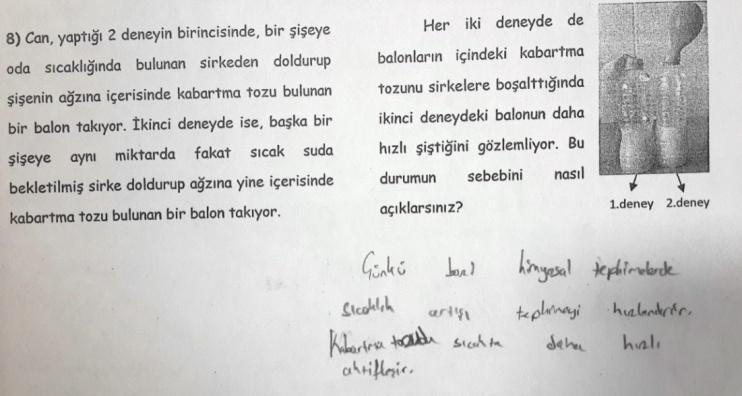 8) Can, yaptığı 2 deneyin birincisinde, bir şişeye
oda sıcaklığında bulunan sirkeden doldurup
şişenin ağzına içerisinde kabartma tozu bulunan
bir balon takıyor. İkinci deneyde ise, başka bir
şişeye aynı miktarda fakat sıcak suda
bekletilmiş sirke doldurup ağzına yine içerisinde
kabartma tozu bulunan bir balon takıyor.
Her iki deneyde de
balonların içindeki kabartma
tozunu sirkelere boşalttığında
ikinci deneydeki balonun daha
hızlı şiştiğini gözlemliyor. Bu
durumun sebebini nasıl
açıklarsınız?
1.deney 2.deney
Günkü bazı kimyasal tepkimelerde
sıcaklık artışı tepkimeyi hızlandırır.
Kabartma tozu sıcakta daha hızlı
aktifleşir.